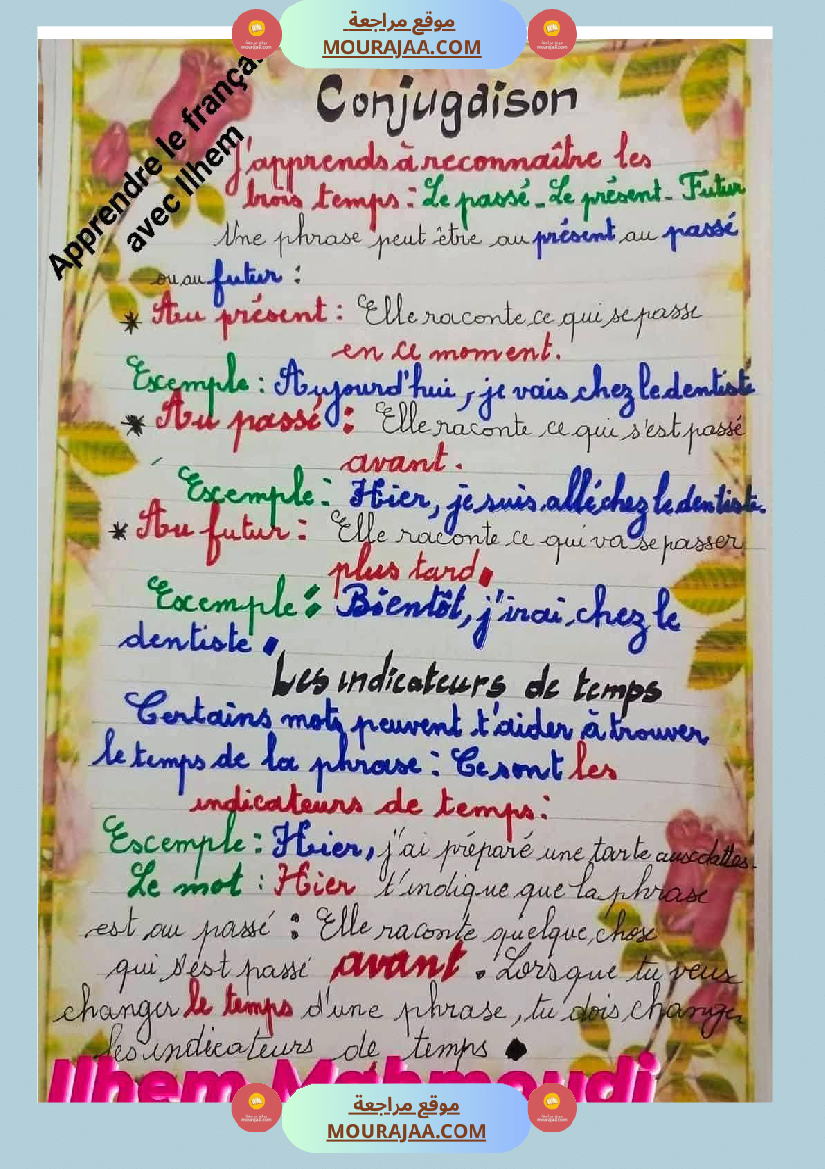 موقع مراجعة
MOURAJAA.COM
Apprendre le français
avec Ilhem
Conjugaison
J'apprends à reconnaître les
trois temps : Le passé - Le présent - Futur
Une phrase peut être au présent, au passé
ou au futur :
* Au présent : Elle raconte ce qui se passe
en ce moment.
Exemple : Aujourd'hui, je vais chez le dentiste
* Au passé : Elle raconte ce qui s'est passé
avant.
Exemple : Hier, je suis allé chez le dentiste.
* Au futur : Elle raconte ce qui va se passer
plus tard.
Exemple : Bientôt, j'irai chez le
dentiste.
Les indicateurs de temps
Certains mots peuvent t'aider à trouver
le temps de la phrase : Ce sont les
indicateurs de temps :
Exemple : Hier, j'ai préparé une tarte aux dattes.
Le mot : Hier t'indique que la phrase
est au passé : Elle raconte quelque chose
qui s'est passé avant. Lorsque tu veux
changer le temps d'une phrase, tu dois changer
les indicateurs de temps.
Ilhem Mahmoudi
موقع مراجعة
MOURAJAA.COM